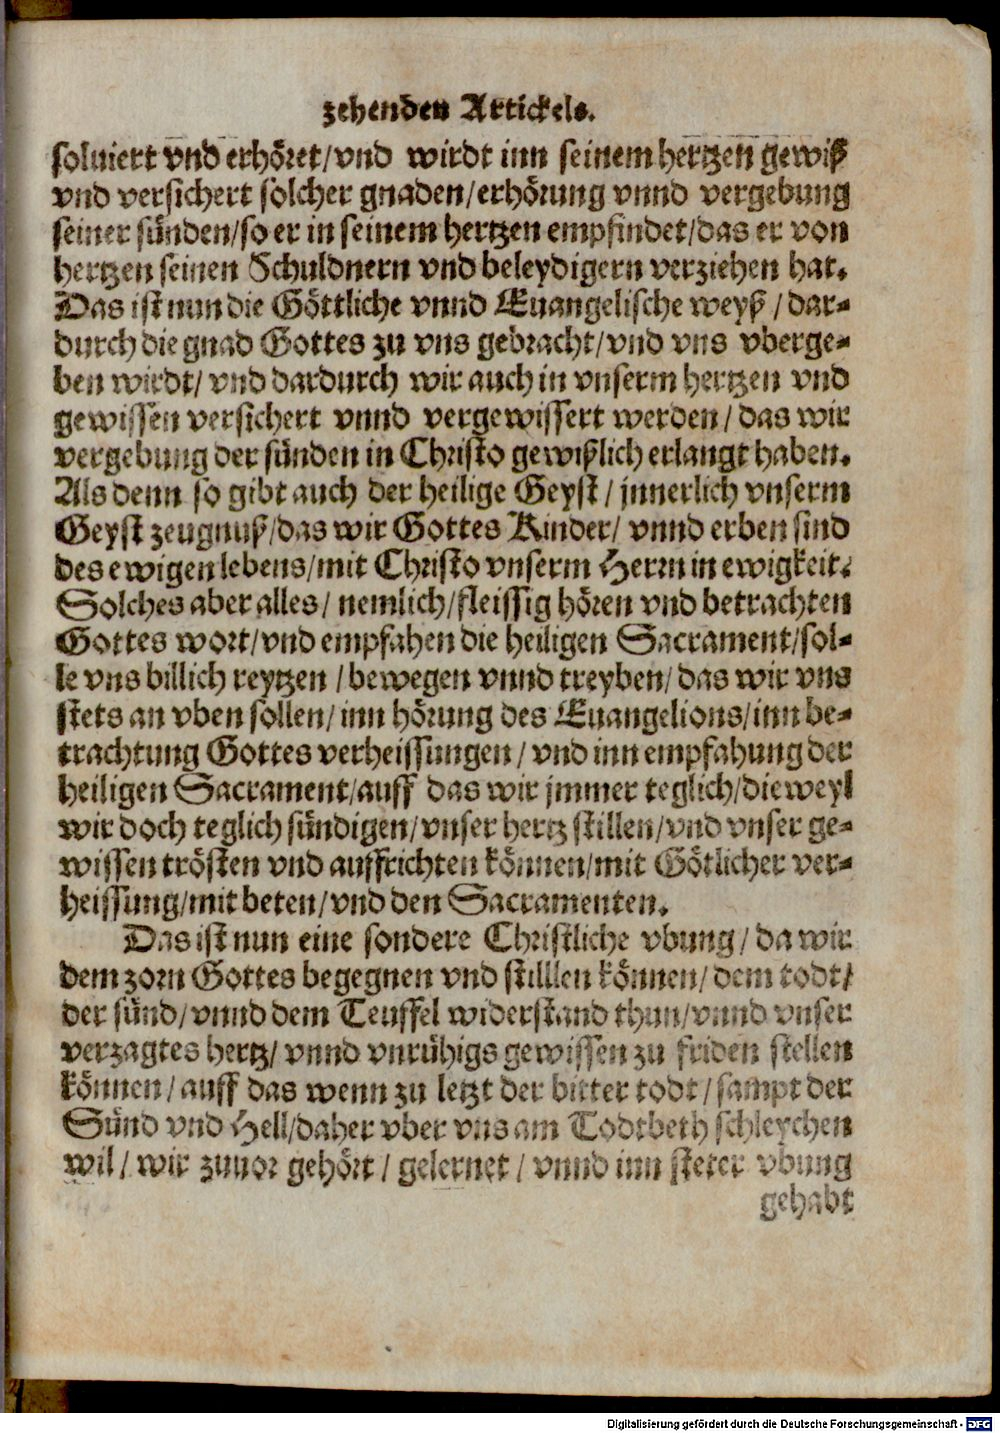 zehenden Artickels.
soluiert vnd erhöret/vnd wirdt inn seinem hertzen gewiß
vnd versichert solcher gnaden/erhörung vnnd vergebung
seiner sünden/so er in seinem hertzen empfindet/das er von
hertzen seinen Schuldnern vnd beleydigern verziehen hat.
Das ist nun die Göttliche vnnd Euangelische weyß / dar-
durch die gnad Gottes zu vns gebracht/vnd vns vberge-
ben wirdt/ vnd dardurch wir auch in vnserm hertzen vnd
gewissen versichert vnnd vergewissert werden / das wir
vergebung der sünden in Christo gewißlich erlangt haben.
Als denn so gibt auch der heilige Geyst / jnnerlich vnserm
Geyst zeugnuß/das wir Gottes Kinder/ vnnd erben sind
des ewigen lebens/mit Christo vnserm Herrn in ewigkeit.
Solches aber alles/ nemlich/fleissig hören vnd betrachten
Gottes wort/vnd empfahen die heiligen Sacrament/sol-
le vns billich reytzen / bewegen vnnd treyben/ das wir vns
stets an vben sollen/ inn hörung des Euangelions/inn be-
trachtung Gottes verheissungen / vnd inn empfahung der
heiligen Sacrament/auff das wir jmmer teglich/dieweyl
wir doch teglich sündigen/vnser hertz stillen/vnd vnser ge-
wissen trösten vnd auffrichten können/mit Götlicher ver-
heissung/mit beten/vnd den Sacramenten.
Das ist nun eine sondere Christliche vbung / da wir
dem zorn Gottes begegnen vnd stilllen können/ dem todt/
der sünd/vnnd dem Teuffel widerstand thun/vnnd vnser
verzagtes hertz/ vnnd vnrühigs gewissen zu friden stellen
können / auff das wenn zu letzt der bitter todt / sampt der
Sünd vnd Hell/daher vber vns am Todtbeth schleychen
wil / wir zuuor gehört / gelernet / vnnd inn steter vbung
gehabt
Digitalisierung gefördert durch die Deutsche Forschungsgemeinschaft - DFG